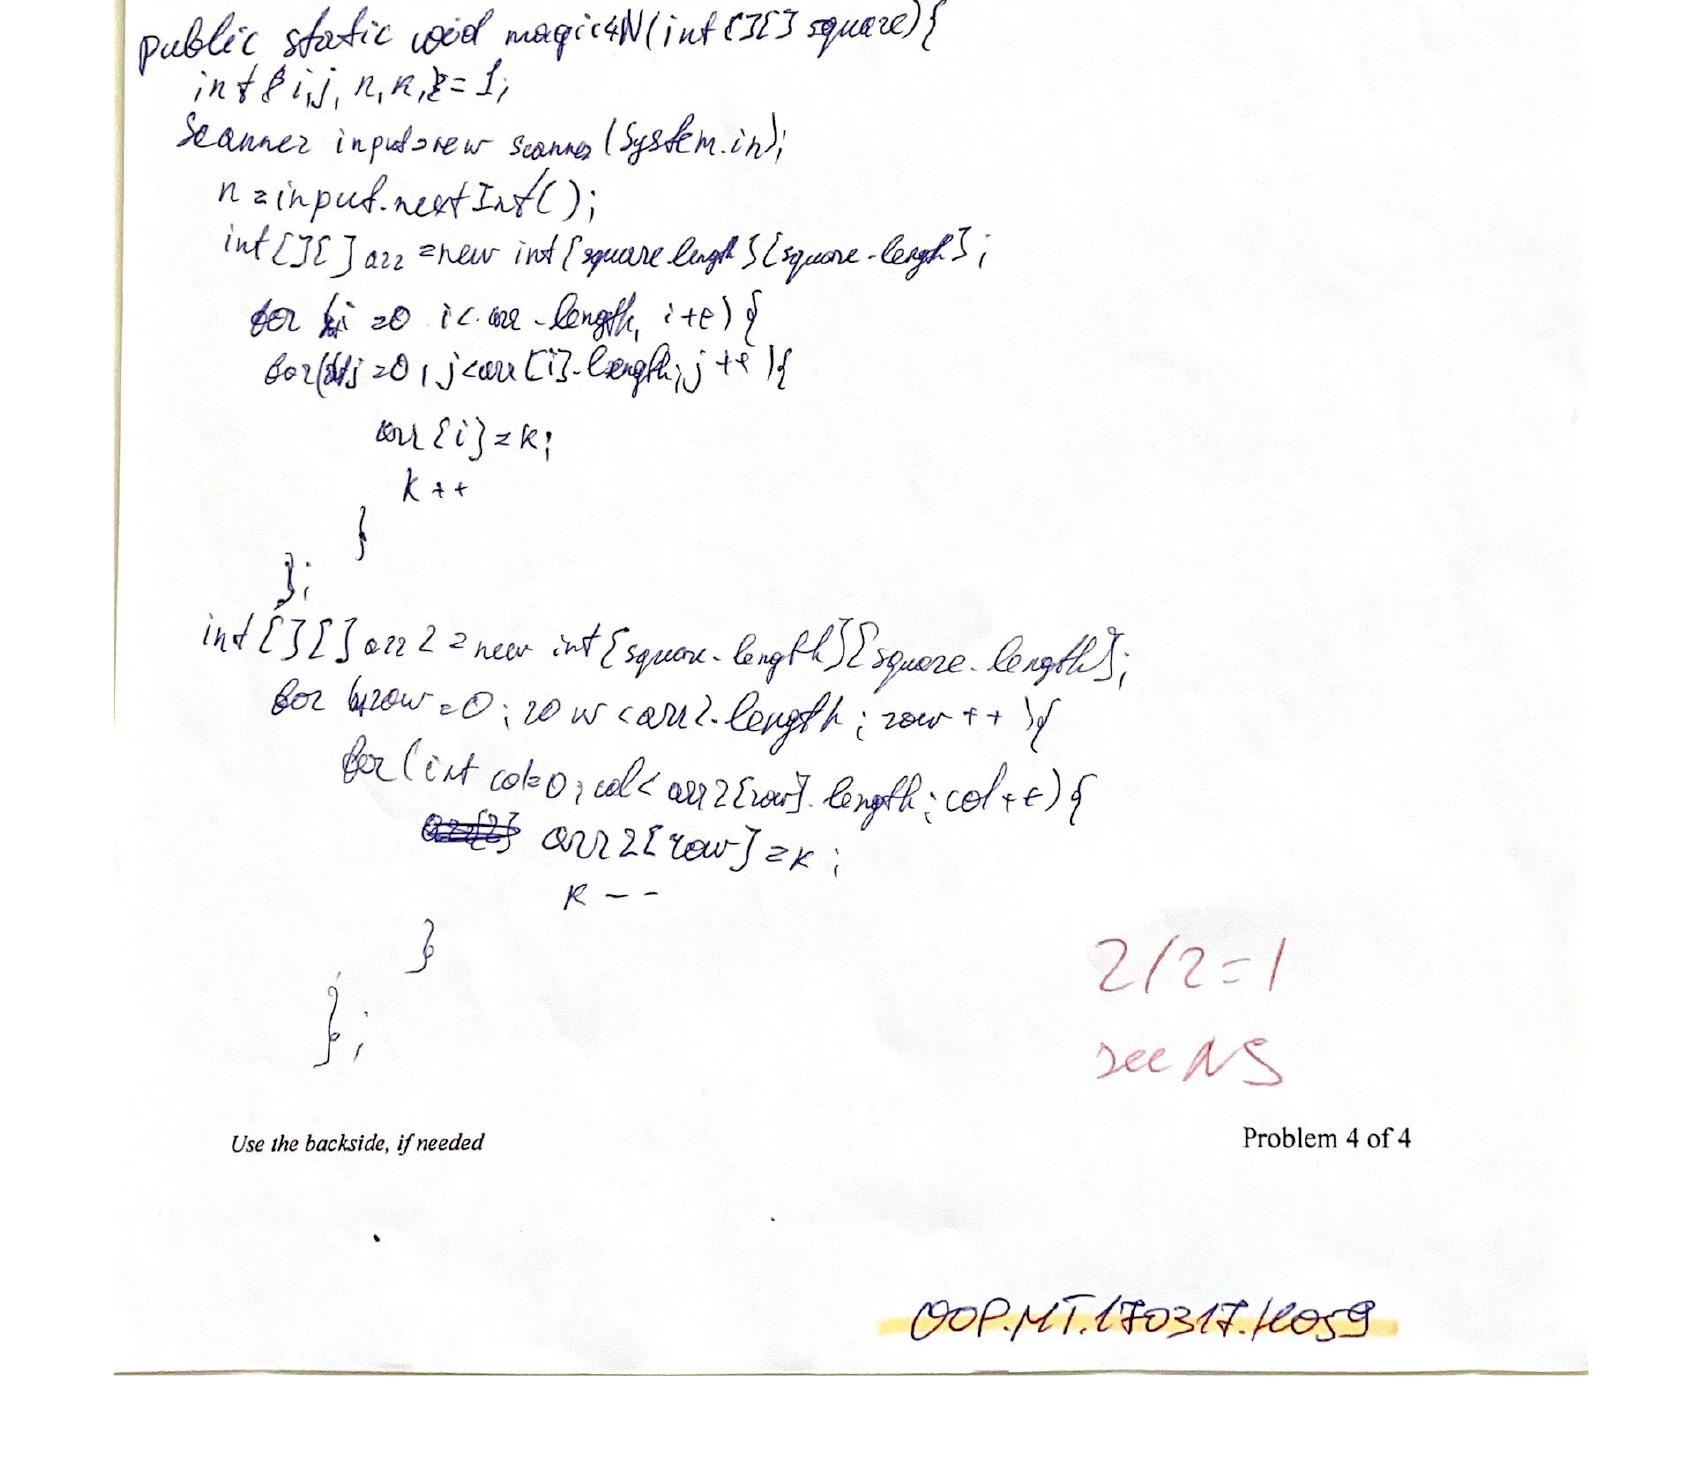 public static void magic4N(int[][] square){
int i,j, n, k, = 1;
Scanner input=new scanner (System.in);
n = input.nextInt();
int[][] arr = new int[square lengh][square.lengh];
for (i = 0 i < arr.length, i++) {
for(j = 0, j<arr[i].length; j++){
arr[i] = k;
k++
}
};
int[][] arr2 = new int[square.length][square.length];
for (row = 0; row < arr2.length; row ++ ){
for(int col=0; col< arr2[row].length; col++){
arr2[row] = k;
k --
}
};
2/2=1
see NS
Use the backside, if needed
Problem 4 of 4
OOP.MT.170317.K059